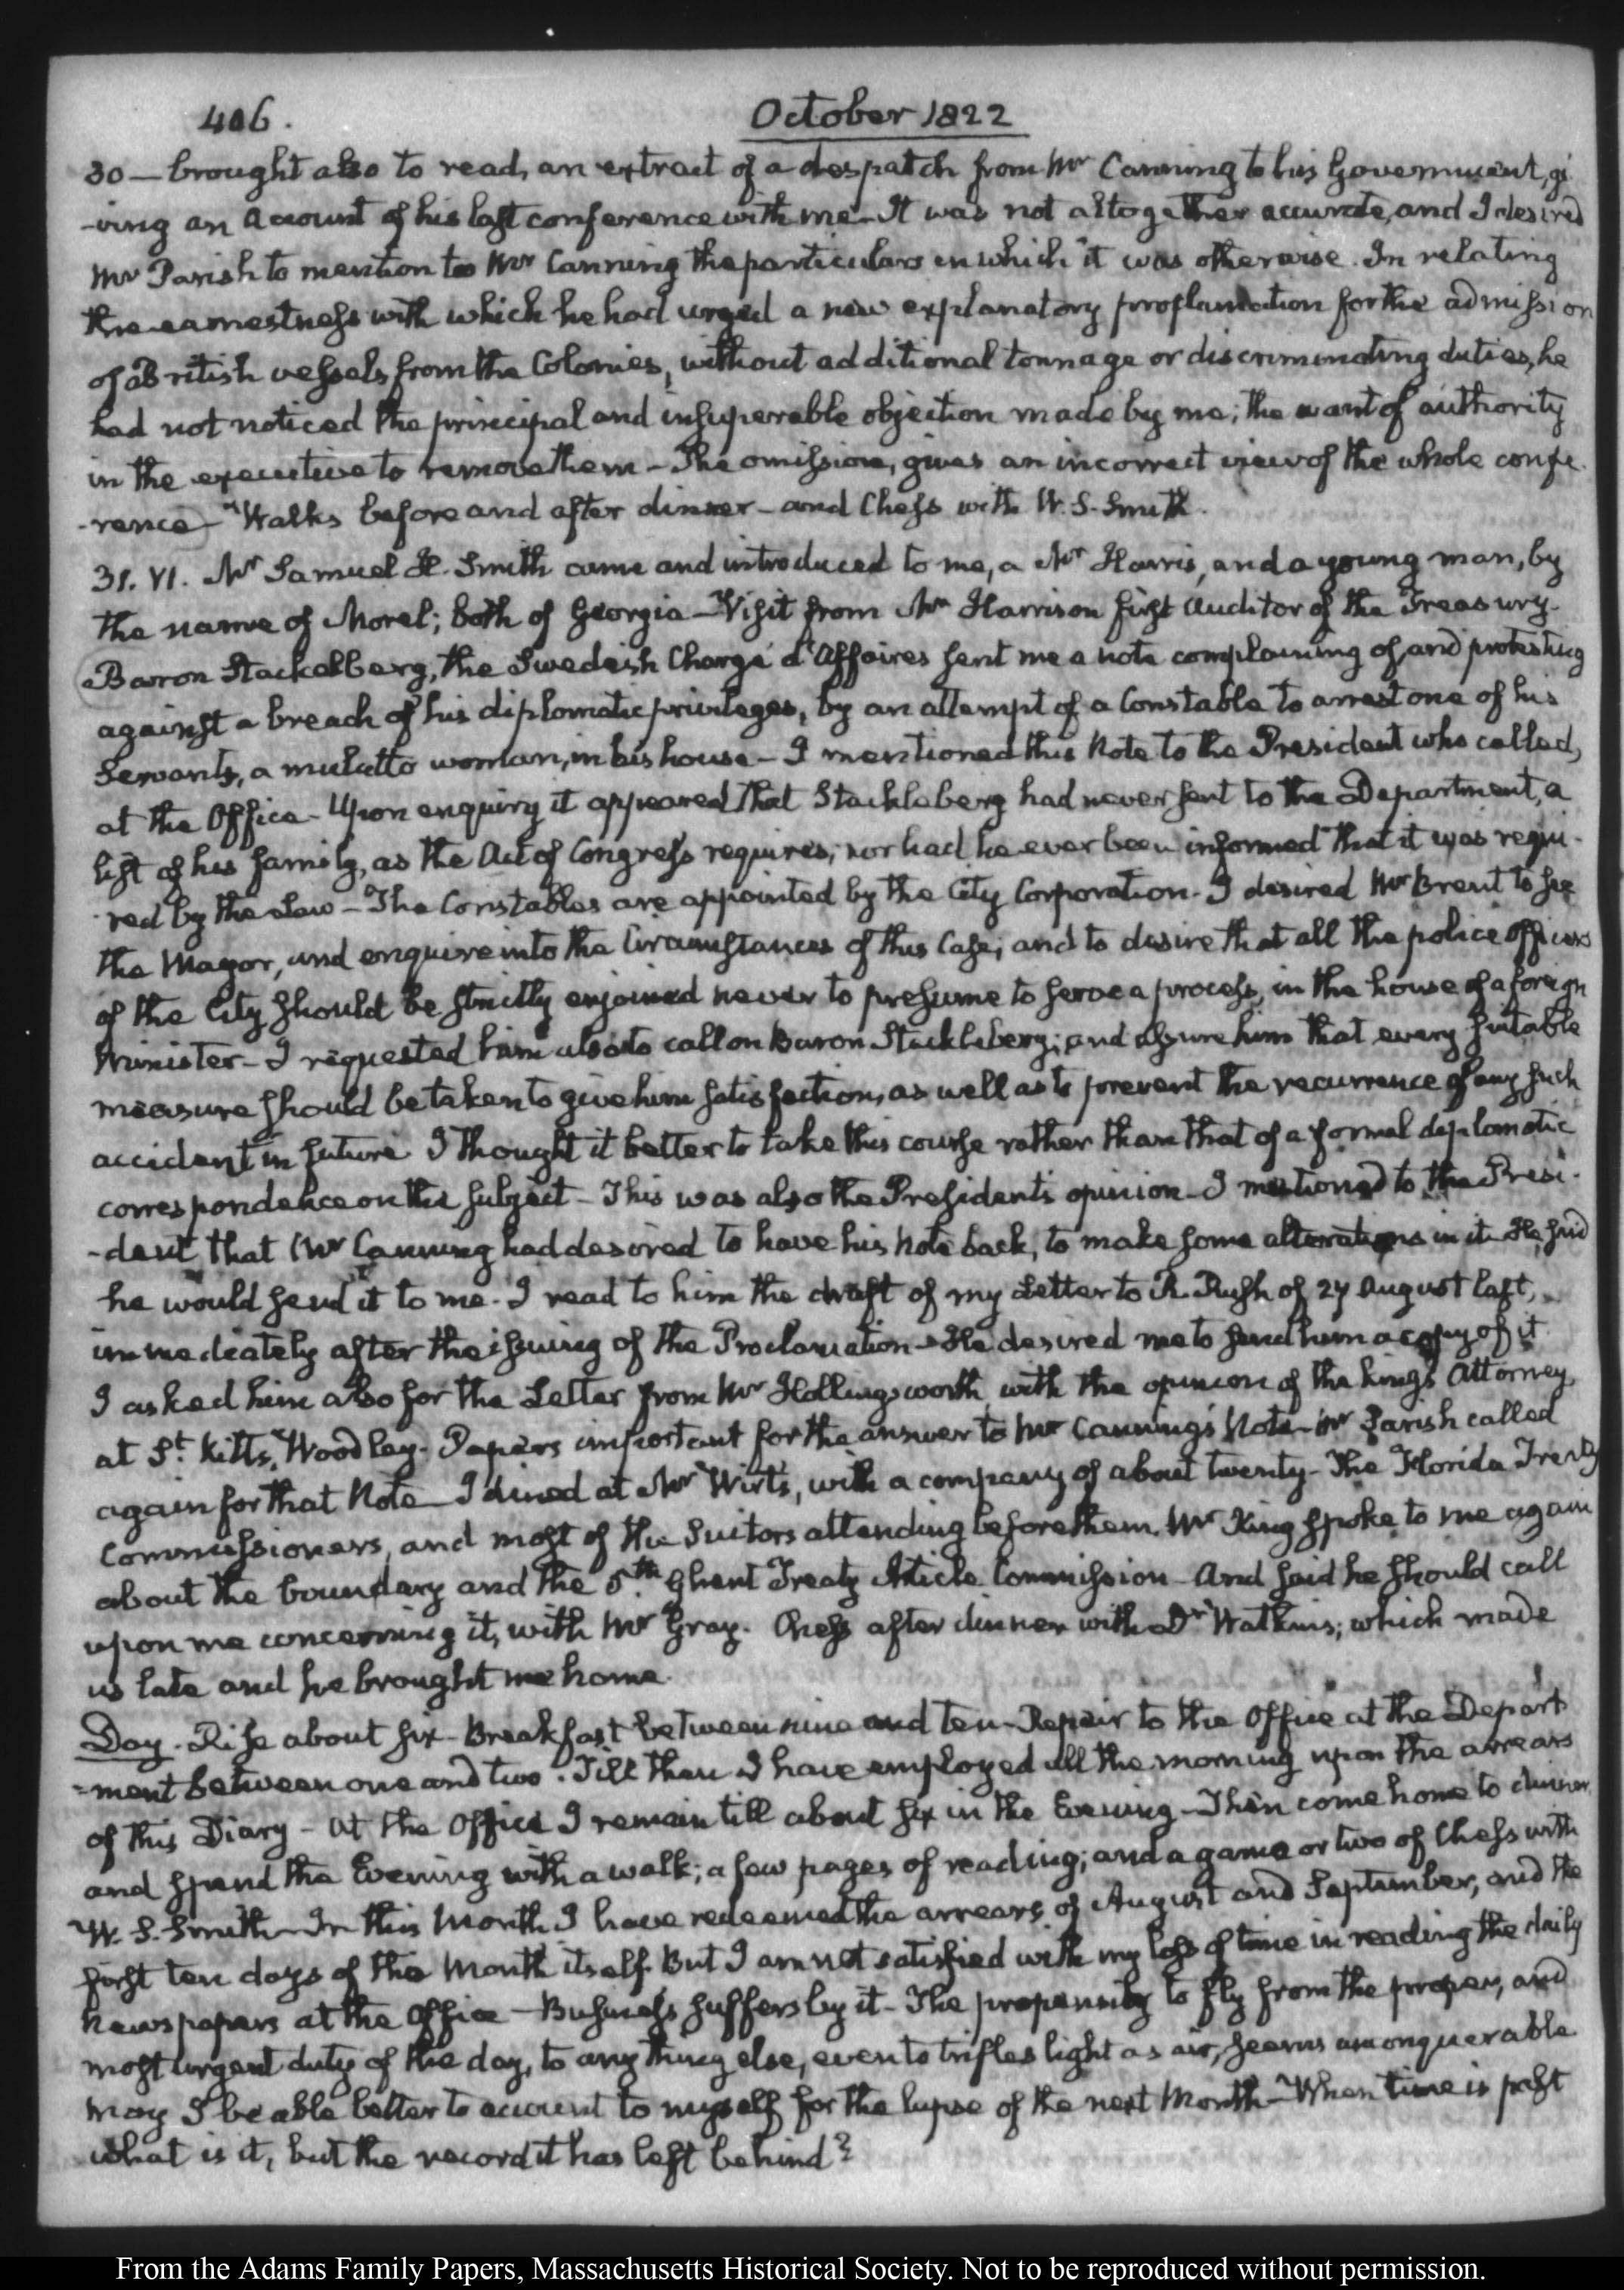 406.
October 1822
30 — brought also to read, an extract of a despatch from Mr Canning to his Government, gi
-ving an account of his last conference with me — It was not altogether accurate, and I desired
Mr Parish to mention to Mr Canning the particulars in which it was otherwise. In relating
the earnestness with which he had urged a new explanatory proclamation for the admission
of British vessels from the Colonies, without additional tonnage or discriminating duties, he
had not noticed the principal and insuperable objection made by me; the want of authority
in the executive to remove them — The omission, gives an incorrect view of the whole confe-
-rence — Walks before and after dinner — and Chess with W. S. Smith.
31. VI. Mr Samuel H. Smith came and introduced to me, a Mr Harris, and a young man, by
the name of Morel; both of Georgia — Visit from Mr Harrison first Auditor of the Treasury.
Baron Stackelberg, the Swedish Chargé d'Affaires sent me a note complaining of, and protesting
against a breach of his diplomatic privileges, by an attempt of a Constable to arrest one of his
Servants, a mulatto woman, in his house — I mentioned this Note to the President who called,
at the Office — Upon enquiry it appeared that Stackleberg had never sent to the Department, a
list of his family, as the Act of Congress requires; nor had he ever been informed that it was requi-
-red by the Law — The Constables are appointed by the City Corporation — I desired Mr Brent to see
the Mayor, and enquire into the Circumstances of this Case; and to desire that all the police officers
of the City should be strictly enjoined never to presume to serve a process, in the house of a foreign
Minister — I requested him also to call on Baron Stackleberg; and assure him that every suitable
measure should be taken to give him satisfaction, as well as to prevent the recurrence of any such
accident in future. I thought it better to take this course rather than that of a formal diplomatic
correspondence on the subject — This was also the President's opinion — I mentioned to the Presi-
-dent that Mr Canning had desired to have his Note back, to make some alterations in it. He said
he would send it to me. I read to him the draft of my Letter to R. Rush of 27 August last,
immediately after the issuing of the Proclamation — He desired me to send him a copy of it
I asked him also for the Letter from Mr Hollingsworth with the opinion of the king's Attorney,
at St. Kitts, Woodley — Papers important for the answer to Mr Canning's Note — Mr Parish called
again for that Note — I dined at Mr Wirt's, with a company of about twenty — The Florida Treaty
Commissioners, and most of the Suitors attending before them. Mr King spoke to me again
about the boundary and the 5th Ghent Treaty Article Commission — And said he should call
upon me concerning it, with Mr Gray. Chess after dinner with Dr Watkins; which made
us late and he brought me home.
Day. Rise about six — Breakfast between nine and ten — Repair to the Office at the Depart
=ment between one and two. Till then I have employed all the morning upon the arrears
of this Diary — At the Office I remain till about six in the Evening — Then come home to dinner
and spend the Evening with a walk; a few pages of reading; and a game or two of Chess with
W. S. Smith — In this Month I have redeemed the arrears of August and September, and the
first ten days of the Month itself. But I am not satisfied with my loss of time in reading the daily
newspapers at the Office — Business suffers by it — The propensity to fly from the proper, and
most urgent duty of the day, to any thing else, even to trifles light as air, seems unconquerable
May I be able better to account to myself for the lapse of the next Month — When time is past
what is it, but the record it has left behind?
From the Adams Family Papers, Massachusetts Historical Society. Not to be reproduced without permission.